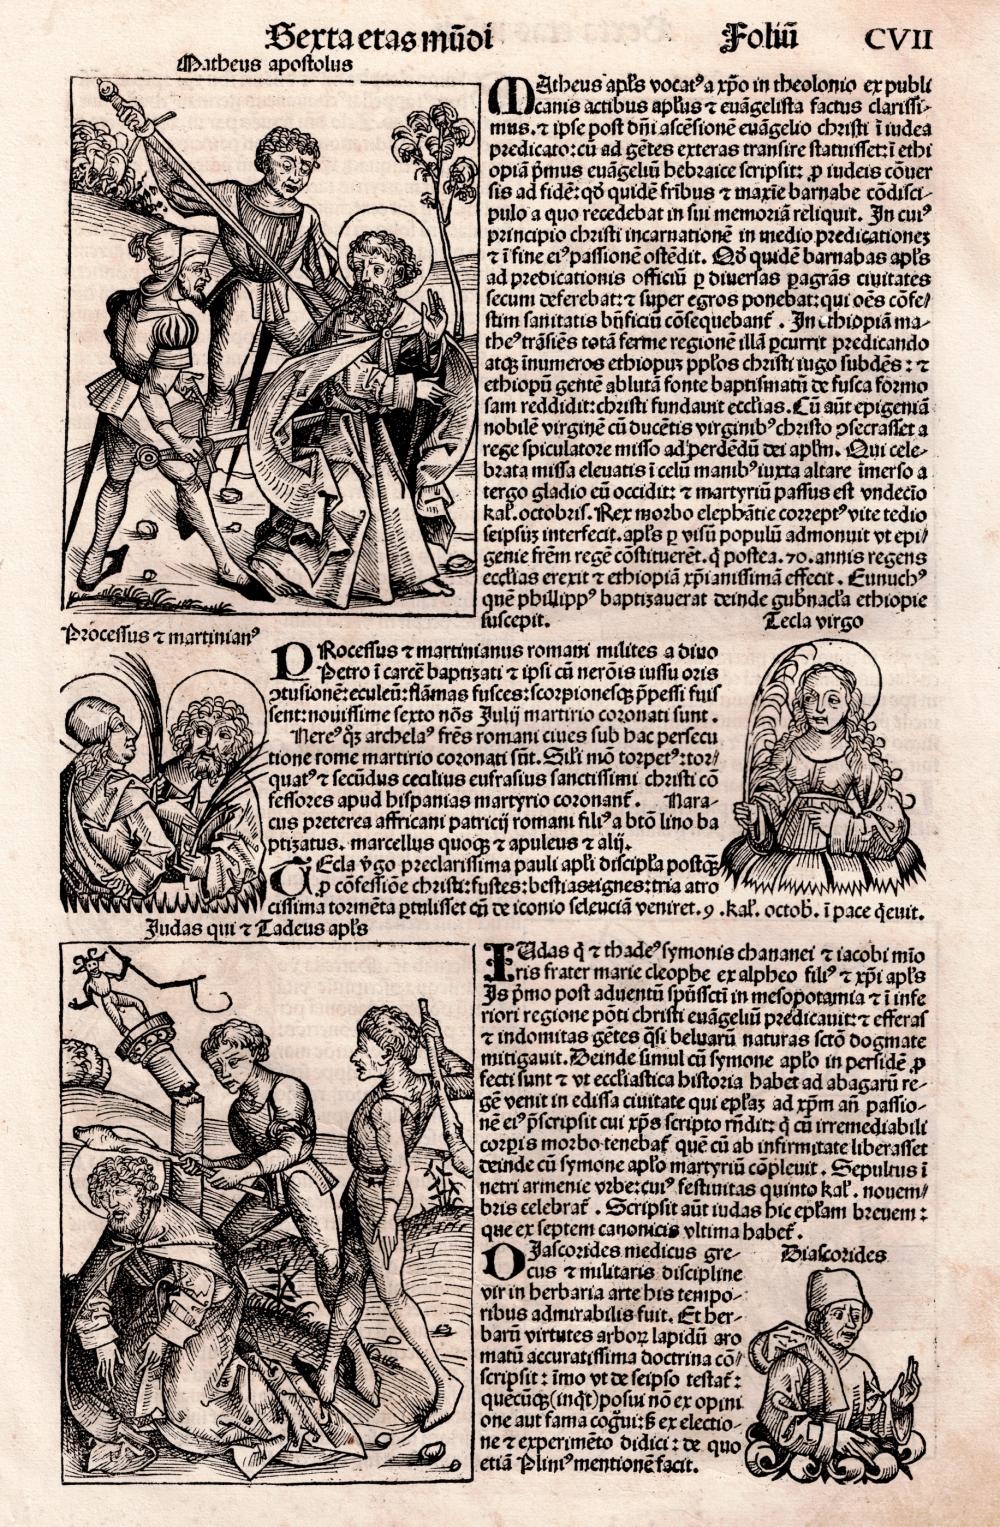 Sexta etas mũdi Foliũ CVII
Matheus apostolus
MAtheus apl̃s vocatꝰ a xp̃o in theolonio ex publi
canis actibus apl̃us ⁊ euãgelista factus clarissi-
mus. ⁊ ipse post dñi ascẽsionẽ euãgelio christi ĩ iudea
predicato: cũ ad gẽtes exteras transire statuisset: ĩ ethi
opiã p̃mus euãgeliũ hebraice scripsit: ꝓ iudeis cõuer
sis ad fidẽ: qð quidẽ fr̃ibus ⁊ maxie barnabe cõdisci-
pulo a quo recedebat in sui memoriã reliquit. In cuiꝰ
principio christi incarnationẽ in medio predicationeꝫ
⁊ ĩ fine eiꝰ passionẽ ostẽdit. Qð quidẽ barnabas apl̃s
ad predicationis officiũ ꝑ diuersas ꝑagrãs ciuitates
secum deferebat: ⁊ super egros ponebat: qui oẽs cõfe/
stim sanitatis bñficiũ cõsequebant̃. In ethiopiã ma-
theꝰ trãsiẽs totã ferme regionẽ illã ꝑcurrit predicando
atqꝫ inumeros ethiopuꝫ pplos christi iugo subdẽs: ⁊
ethiopũ gentẽ ablutã fonte baptismatũ de fusca formo
sam reddidit: christi fundauit eccl̃ias. Cũ aũt epigeniã
nobilẽ virginẽ cũ ducẽtis virginibꝰ christo ꝯsecrasset a
rege spiculatore misso ad perdẽdũ dei apl̃m. Qui cele-
brata missa eleuatis ĩ celũ manibꝰ iuxta altare ĩmerso a
tergo gladio eũ occidit: ⁊ martyriũ passus est vndecĩo
kal̃. octobris. Rex morbo elephãtie correptꝰ vite tedio
seipsuꝫ interfecit. apl̃s ꝑ visũ populũ admonuit vt epi/
genie fr̃em regẽ cõstituerẽt. q̃ postea .70. annis regens
eccl̃ias erexit ⁊ ethiopiã xp̃ianissimã effecit. Eunuchꝰ
quẽ phillippꝰ baptizauerat deinde gub̃nacl̃a ethiopie
suscepit. Tecla virgo
Processus ⁊ martinianꝰ
PRocessus ⁊ martinianus romani milites a diuo
Petro ĩ carcẽ baptizati ⁊ ipsi cũ nerõis iussu oris
ꝯtusionẽ: eculeũ: flãmas fusces: scorpionesqꝫ p̃pessi fuis
sent: nouissime sexto nõs Julij martirio coronati sunt.
Nereꝰ qꝫ archelaꝰ fr̃es romani ciues sub hac persecu
tione rome martirio coronati sũt. Sili mõ torpetꝰ: tor/
quatꝰ ⁊ secũdus cecilius eufrasius sanctissimi christi cõ
fessores apud hispanias martyrio coronant̃. Mara-
cus preterea affricani patricij romani filiꝰ a btõ lino ba
ptizatus. marcellus quoqꝫ ⁊ apuleus ⁊ alij.
TEcla v̊go preclarissima pauli apl̃i discipl̃a postqꝫ
ꝓ cõfessiõe christi: fustes: bestias: ignes: tria atro
cissima tormẽta ꝑtulisset cũ de iconio seleuciã veniret. 9. kal̃. octob̃. ĩ pace q̃euit.
Judas qui ⁊ Tadeus apl̃s
IUdas q̃ ⁊ thadeꝰ symonis chananei ⁊ iacobi mĩo
ris frater marie cleophe ex alpheo filiꝰ ⁊ xp̃i apl̃s
Js p̃mo post aduentũ sp̃ussctĩ in mesopotamia ⁊ ĩ infe
riori regione põti christi euãgeliũ predicauit: ⁊ efferas
⁊ indomitas gẽtes q̃si beluarũ naturas sctõ dogmate
mitigauit. Deinde simul cũ symone apl̃o in persidẽ ꝓ
fecti sunt ⁊ vt eccl̃iastica historia habet ad abagarũ re-
gẽ venit in edissa ciuitate qui ep̃laꝫ ad xp̃m añ passio-
nẽ eiꝰ p̃scripsit cui xp̃s scripto rñdit: q̃ cũ irremediabili
corpis morbo tenebat̃ quẽ cũ ab infirmitate liberasset
deinde cũ symone apl̃o martyriũ cõpleuit. Sepultus ĩ
netri armenie vrbe: cuiꝰ festiuitas quinto kal̃. nouem/
bris celebrat̃. Scripsit aũt iudas hic ep̃lam breuem:
que ex septem canonicis vltima habet̃.
Diascorides
DJascorides medicus gre-
cus ⁊ militaris discipline
vir in herbaria arte his tempo-
ribus admirabilis fuit. Et her-
barũ virtutes arboꝝ lapidũ aro
matũ accuratissima doctrina cõ/
scripsit: ĩmo vt de seipso testat̃:
quẽcũqꝫ (inq̃t) posui nõ ex opini
one aut fama cog̃ui: sꝫ ex electio-
ne ⁊ experimẽto didici: de quo
etiã Pliniꝰ mentionẽ facit.